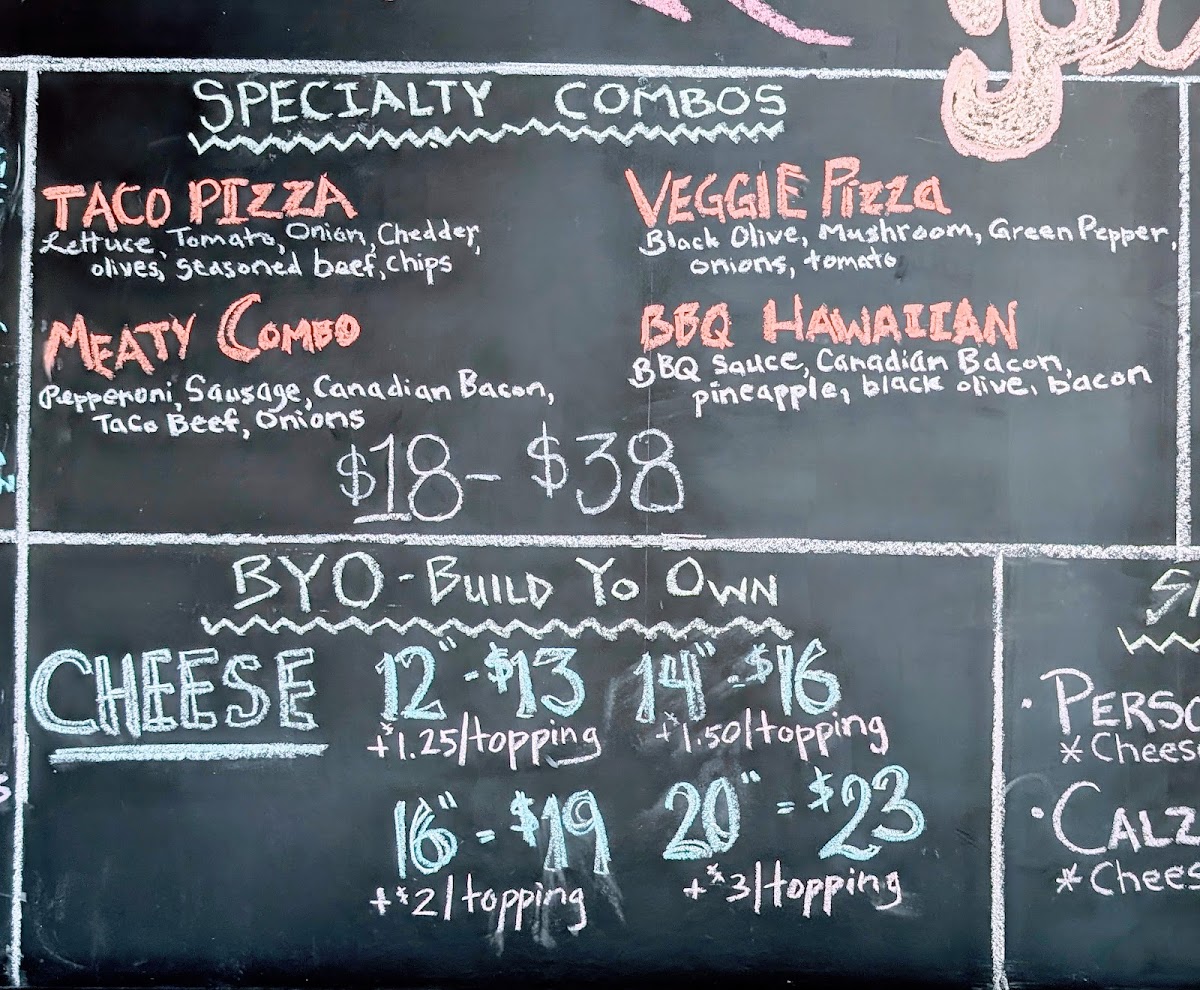 SPECIALTY COMBOS
TACO PIZZA
Lettuce, Tomato, Onion, Chedder,
olives, seasoned beef, chips
VEGGIE Pizza
Black Olive, Mushroom, Green Pepper,
onions, tomato
MEATY COMBO
Pepperoni, Sausage, Canadian Bacon,
Taco Beef, Onions
BBQ HAWAIIAN
BBQ Sauce, Canadian Bacon,
pineapple, black olive, bacon
$18 - $38
BYO - BUILD YO OWN
CHEESE
12" - $13
+$1.25/topping
14" - $16
+$1.50/topping
16" - $19
+$2/topping
20" = $23
+$3/topping